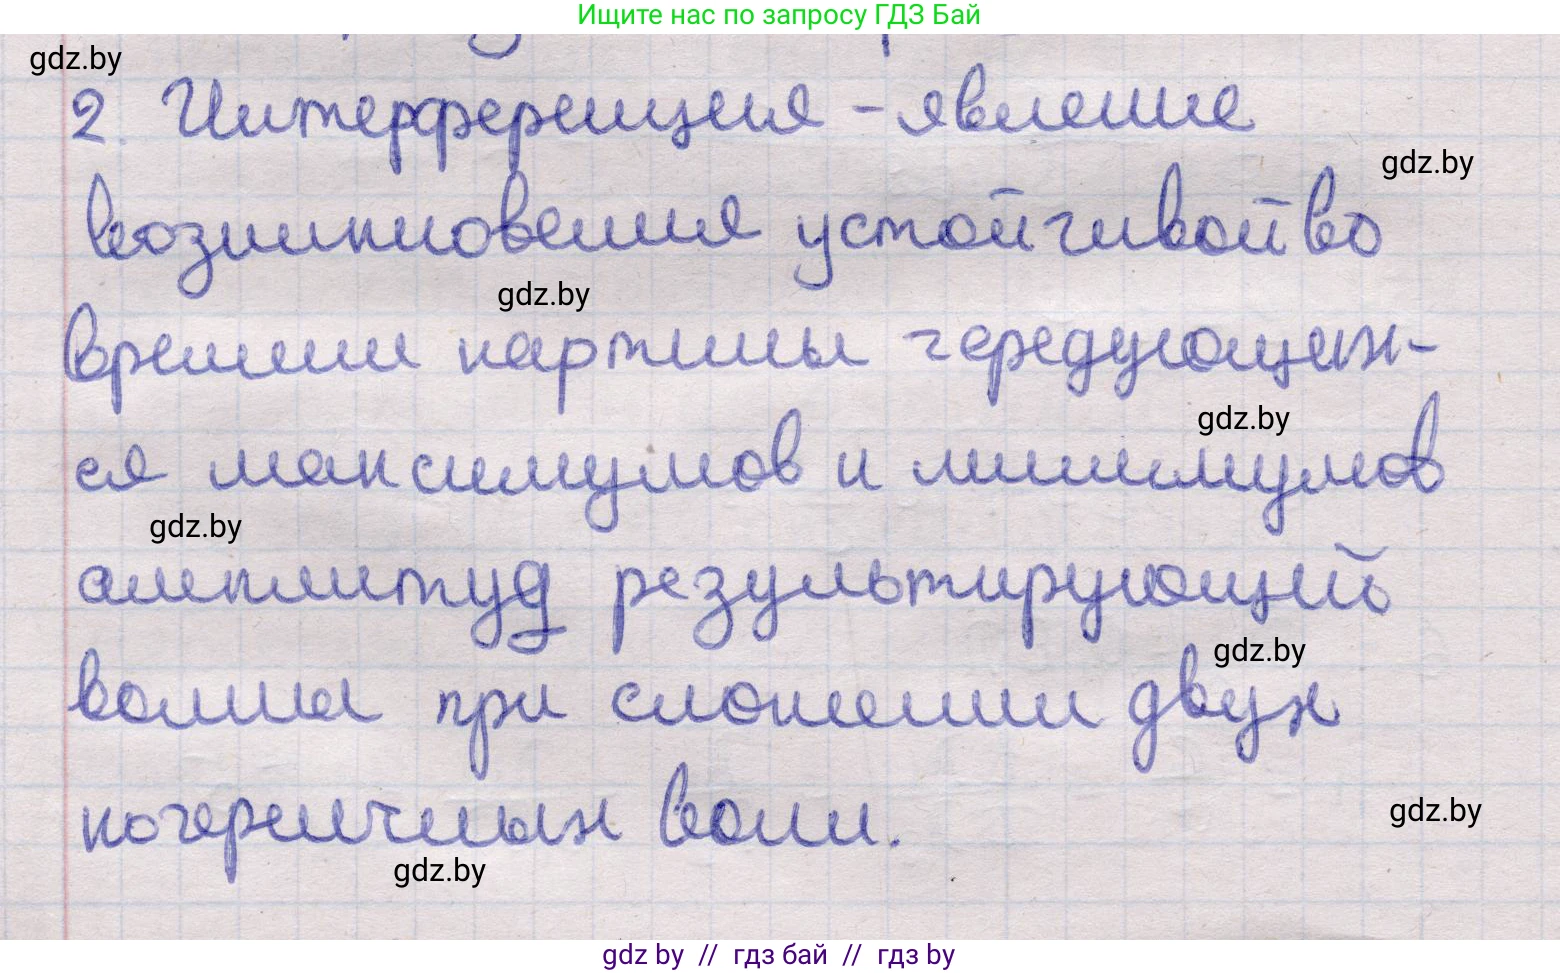 Ищите нас по запросу ГДЗ Бай
gdz.by
2. Интерференция - явление
gdz.by
возникновения устойчивой во
gdz.by
времени картины чередующих-
gdz.by
ся максимумов и минимумов
gdz.by
амплитуд результирующей
gdz.by
волны при сложении двух
когерентных волн.
gdz.by
gdz.by
gdz by // гдз бай // гдз by